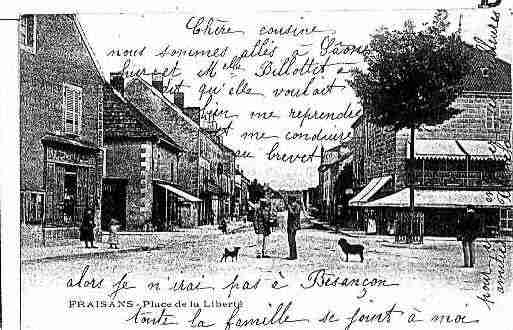 Chère cousine
nous sommes allés à Dôle
hier et Melle Billottet a
dit qu'elle voulait
bien me reprendre
et me conduire
au brevet
alors je n'irai pas à Besançon
FRAISANS - Place de la Liberté
toute la famille se joint à moi
pour